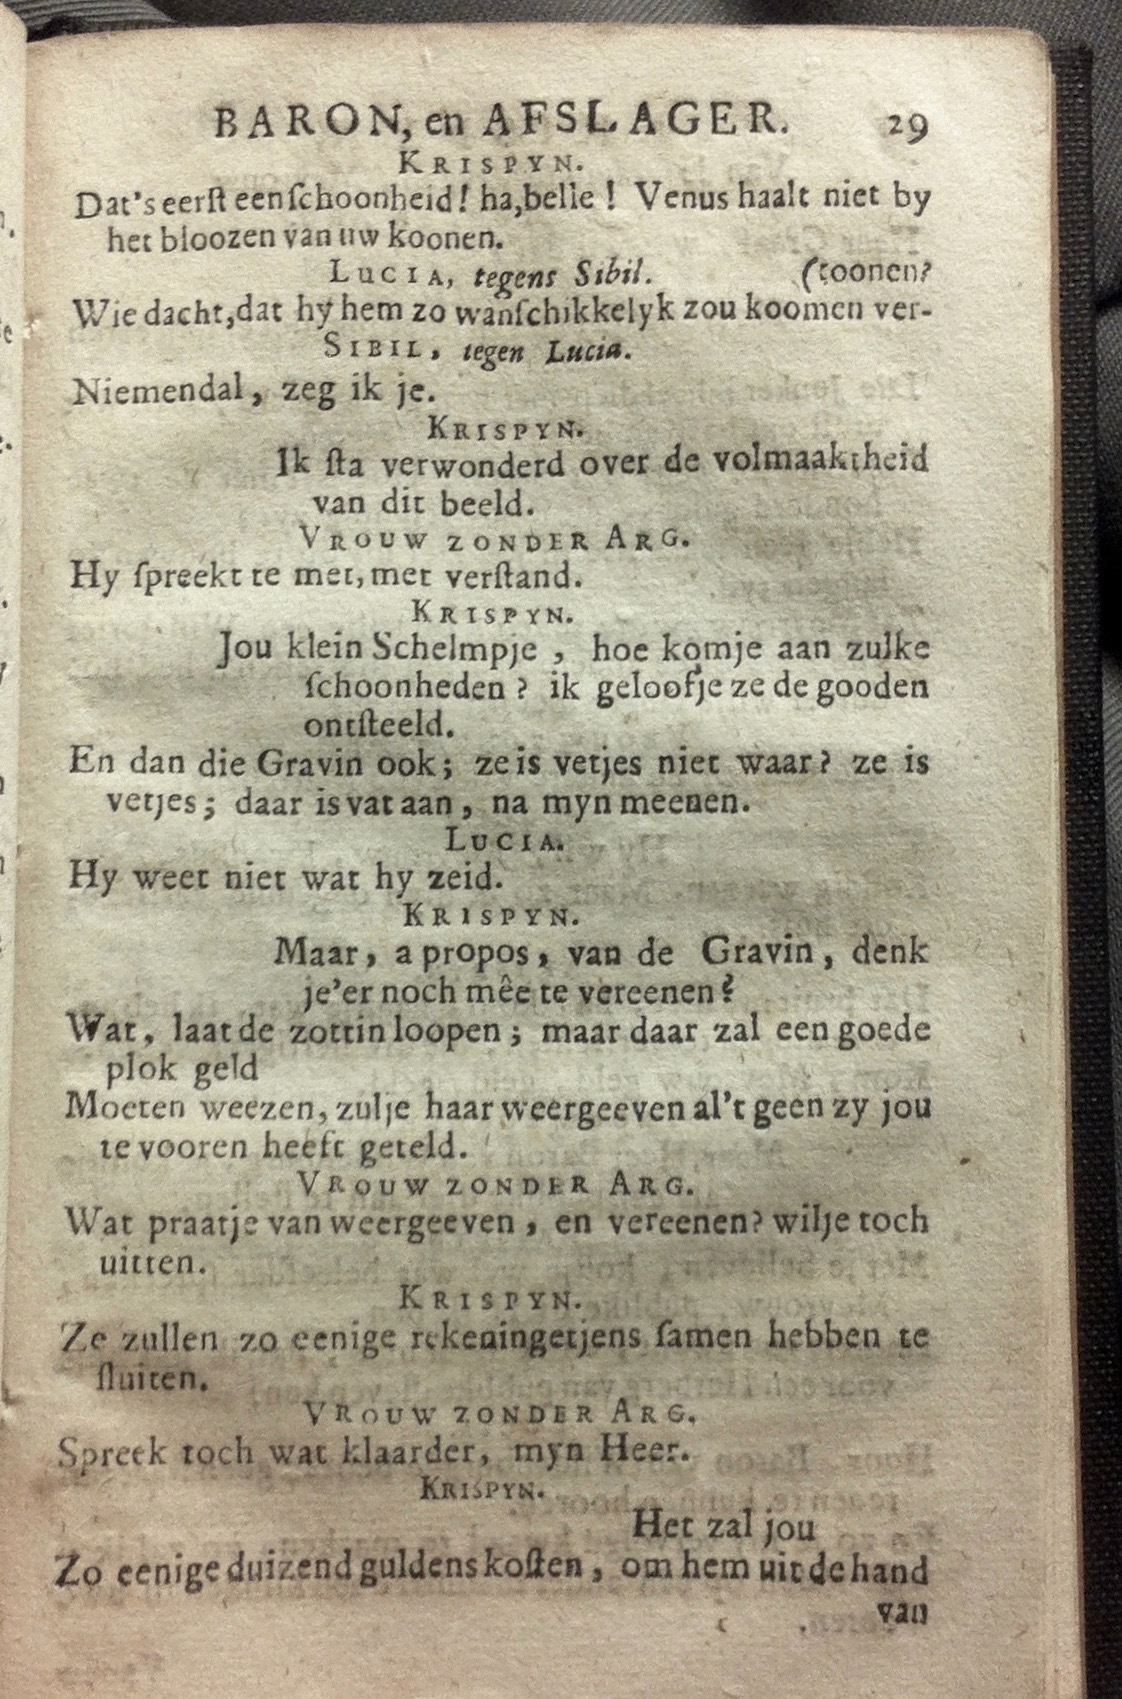 BARON, en AFSLAGER. 29
KRISPYN.
Dat's eerſt een ſchoonheid! ha, belle! Venus haalt niet by
het bloozen van uw koonen.
LUCIA, tegens Sibil. (toonen?
Wie dacht, dat hy hem zo wanſchikkelyk zou koomen ver-
SIBIL, tegen Lucia.
Niemendal, zeg ik je.
KRISPYN.
Ik ſta verwonderd over de volmaaktheid
van dit beeld.
VROUW ZONDER ARG.
Hy ſpreekt te met, met verſtand.
KRISPYN.
Jou klein Schelmpje, hoe komje aan zulke
ſchoonheden? ik geloofje ze de gooden
ontſteeld.
En dan die Gravin ook; ze is vetjes niet waar? ze is
vetjes; daar is vat aan, na myn meenen.
LUCIA.
Hy weet niet wat hy zeid.
KRISPYN.
Maar, a propos, van de Gravin, denk
je'er noch mêe te vereenen?
Wat, laat de zottin loopen; maar daar zal een goede
plok geld
Moeten weezen, zulje haar weergeeven al't geen zy jou
te vooren heeft geteld.
VROUW ZONDER ARG.
Wat praatje van weergeeven, en vereenen? wilje toch
uitten.
KRISPYN.
Ze zullen zo eenige rekeningetjens ſamen hebben te
ſluiten.
VROUW ZONDER ARG.
Spreek toch wat klaarder, myn Heer.
KRISPYN.
Het zal jou
Zo eenige duizend guldens koſten, om hem uit de hand
van